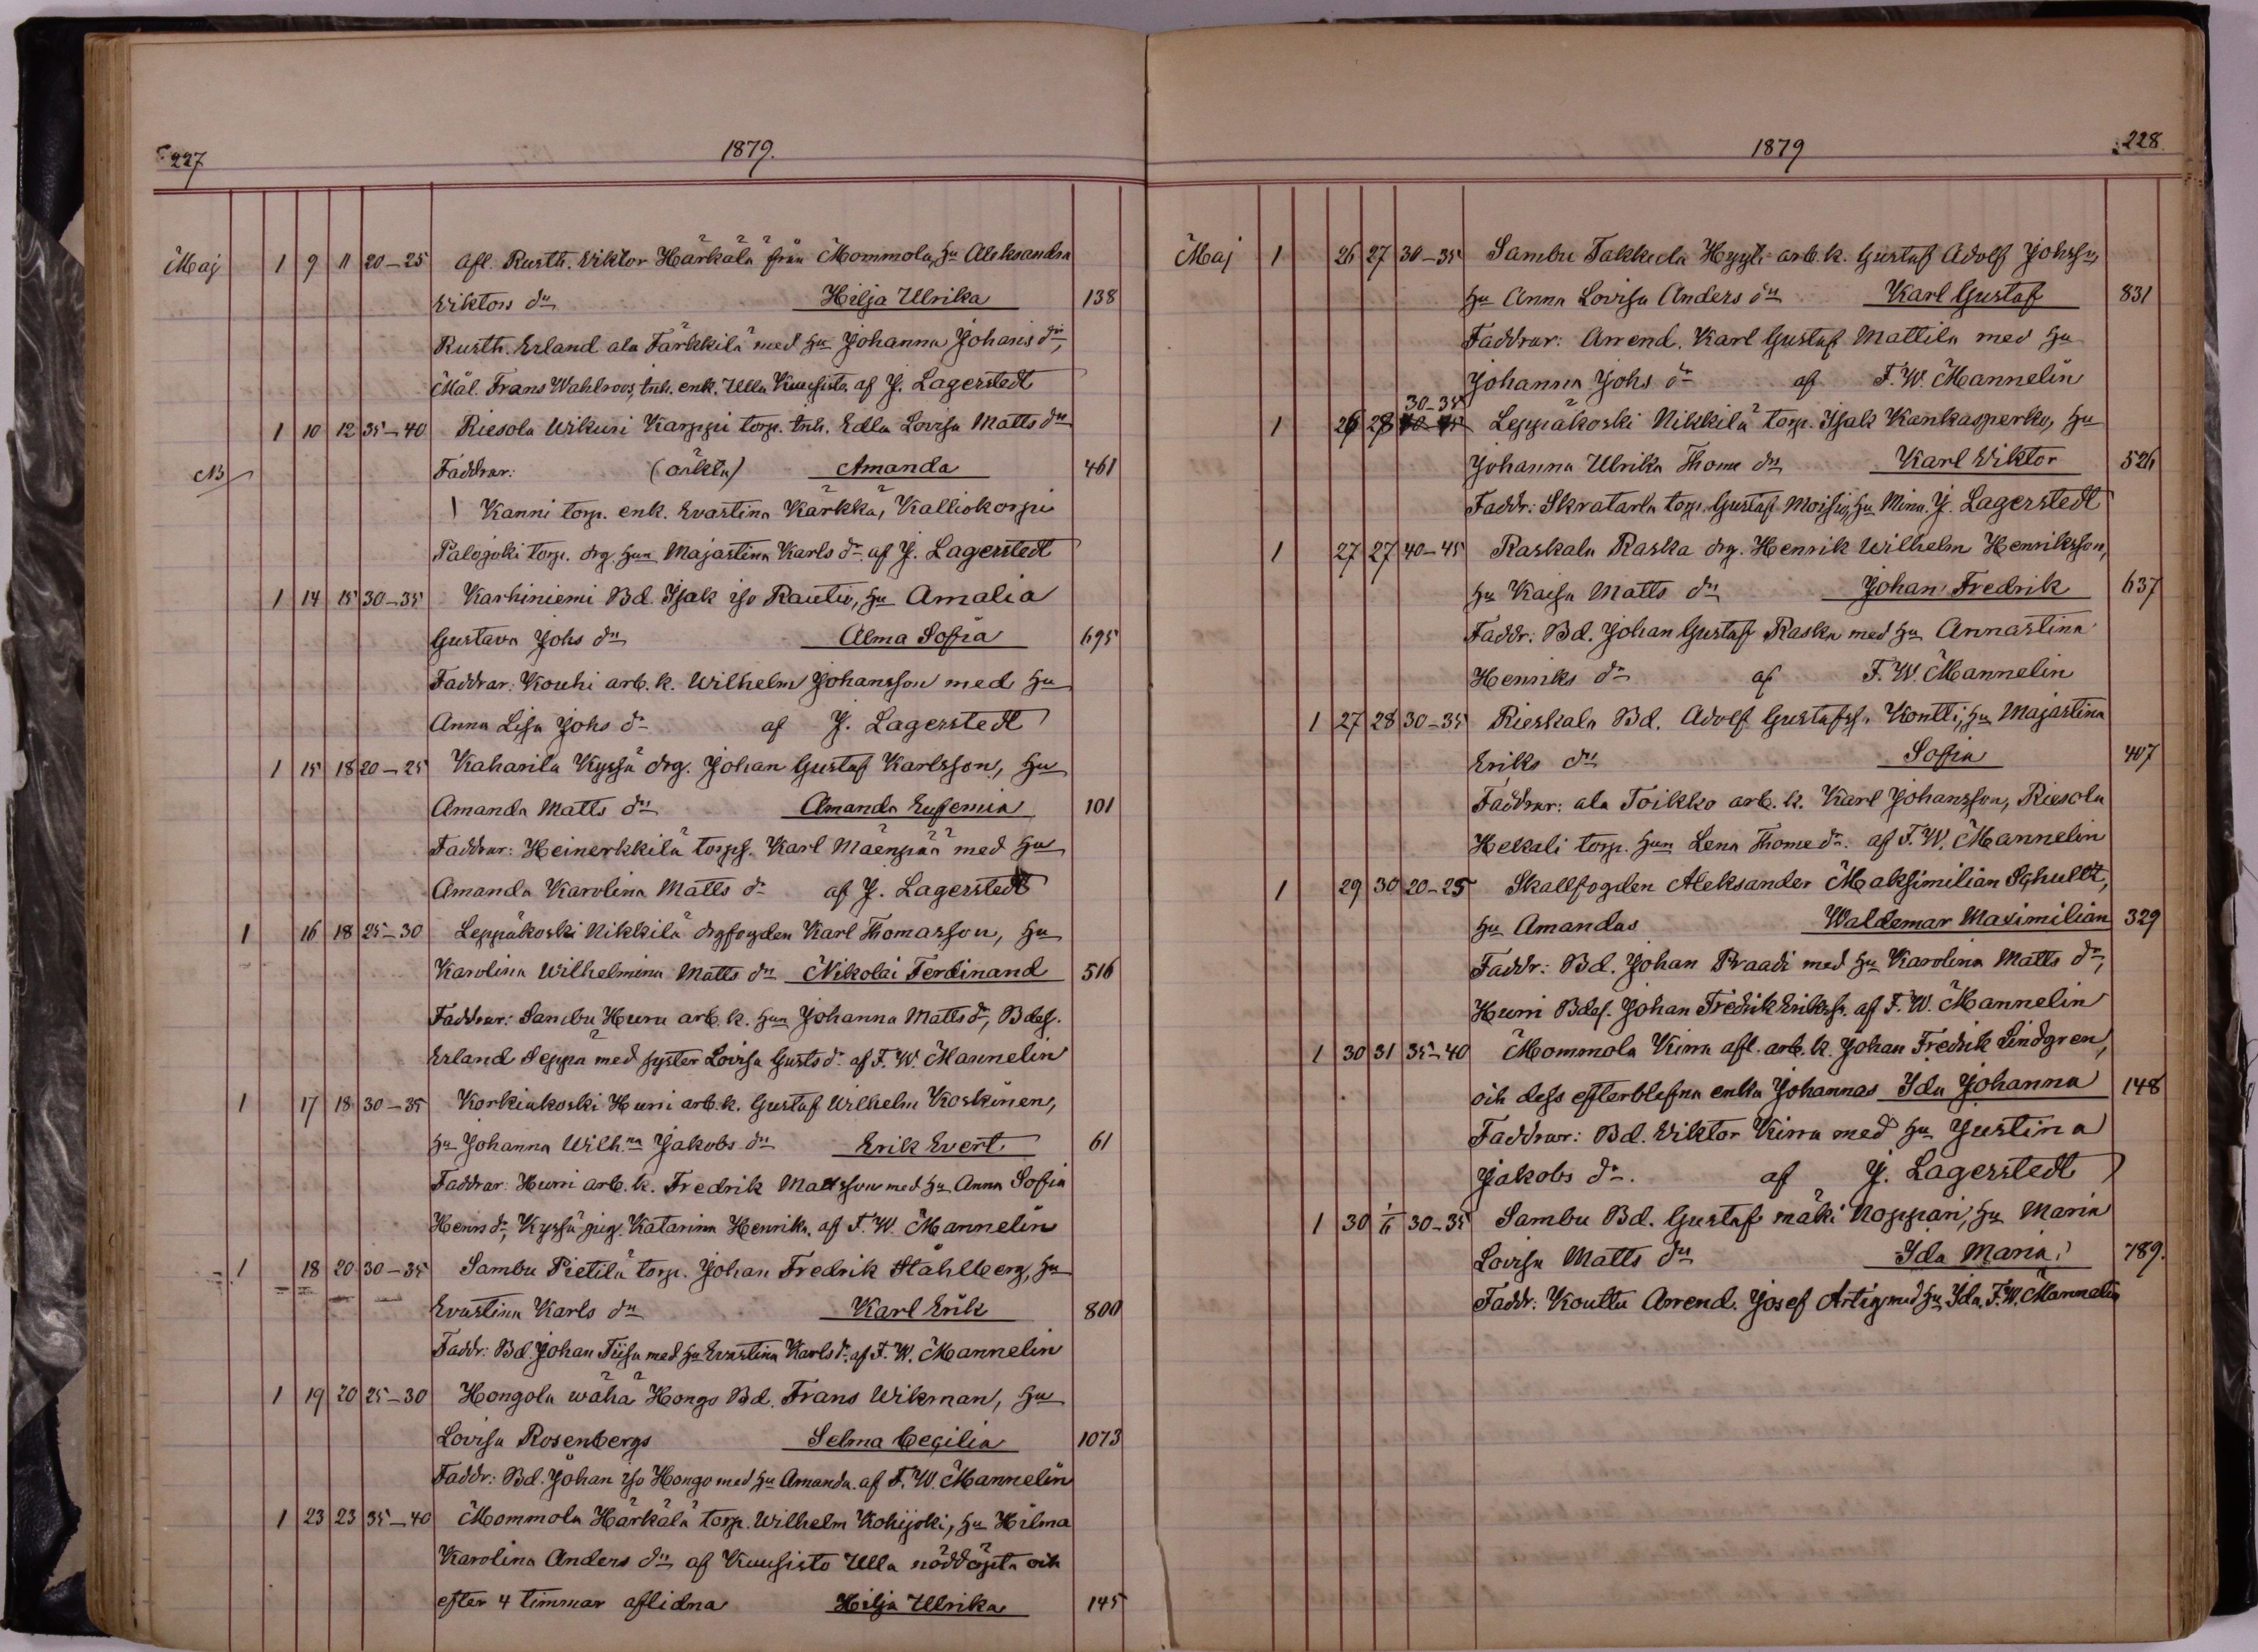 227
1879.
Maj 1 9 11 20-25 Afl. Rusth. Viktor Härkälä från Mommola, Hu Aleksandra
Viktors dr Hilja Ulrika 138
Rusth. Erland ala Färkkilä med Hu Johanna Johans dr,
Mål. Frans Wahlroos, Inh. enk. Ulla Kuusisto, af J. Lagerstedt
1 10 12 35-40 Riesola Wikuri Karppi torp. Inh. Edla Lovisa Matts dr
NB Faddrar: (oäkta) Amanda 461
Kanni torp. enk. Evastina Kärkkä, Kalliokorpi
Palojoki torp. drg. Hun Majastina Karls dr af J. Lagerstedt
1 14 15 30-35 Karhiniemi Bd. Isak iso Rautio, Hu Amalia
Gustava Johs dr Alma Sofia 695
Faddrar: Kouhi arb. k. Wilhelm Johansson med Hu
Anna Lisa Johs dr af J. Lagerstedt
1 15 18 20-25 Kaharila Kyssä drg. Johan Gustaf Karlsson, Hu
Amanda Matts dr Amanda Eufemia 101
Faddrar: Heinerkkilä torps. Karl Mäenpää med Hu
Amanda Karolina Matts dr af J. Lagerstedt
1 16 18 25-30 Leppäkoski Nikkilä drgfogden Karl Thomasson, Hu
Karolina Wilhelmina Matts dr Nikolai Ferdinand 516
Faddrar: Sambu Hurri arb. k. Hun Johanna Matts dr, Bdas.
Erland Seppä med syster Lovisa Gusts dr af F. W. Mannelin
1 17 18 30-35 Korkiakoski Hurri arb. k. Gustaf Wilhelm Koskinen,
Hu Johanna Wilh.na Jakobs dr Erik Evert 61
Faddrar: Hurri arb. k. Fredrik Mattsson med Hu Anna Sofia
Henrs dr, Kyssä pig. Katarina Henrika, af F. W. Mannelin
1 18 20 30-35 Sambu Pietilä torp. Johan Fredrik Ståhlberg, Hu
Evastina Karls dr Karl Erik 800
Faddr: Bd. Johan Tiisa med Hu Evastina Karls dr, af F. W. Mannelin
1 19 20 25-30 Hongola wähä Hongo Bd. Frans Wikman, Hu
Lovisa Rosenbergs Selma Cecilia 1073
Faddr: Bd. Johan iso Hongo med Hu Amanda. af F. W. Mannelin
1 23 23 35-40 Mommola Härkälä torp. Wilhelm Kohijoki, Hu Hilma
Karolina Anders dr af Kuusisto Ulla nöddöpta och
efter 4 timmar aflidna Hilja Ulrika 145
1879
228
Maj 1 26 27 30-35 Sambu Takkula Hyyli arb. k. Gustaf Adolf Johsson,
Hu Anna Lovisa Anders dr Karl Gustaf 831
Faddrar: Arrend. Karl Gustaf Mattila med Hu
Johanna Johs dr af F. W. Mannelin
30-35
1 26 28 Leppäkoski Nikkilä torp. Isak Kankasperko, Hu
Johanna Ulrika Thome dr Karl Viktor 526
Faddr: Skratarla torp. Gustaf Moisio, Hu Mina. J. Lagerstedt
1 27 27 40-45 Raskala Raska drg. Henrik Wilhelm Henriksson,
Hu Kaisa Matts dr Johan Fredrik 637
Faddr: Bd. Johan Gustaf Raska med Hu Annastina
Henriks dr af F. W. Mannelin
1 27 28 30-35 Rieskala Bd. Adolf Gustafss. Kontti, Hu Majastina
Eriks dr Sofia 407
Faddrar: ala Toikko arb. k. Karl Johansson, Riesola
Hekali torp. Hun Lena Thome dr. af F. W. Mannelin
1 29 30 20-25 Skallfogden Aleksander Maksimilian Schultz,
Hu Amandas Waldemar Maximilian 329
Faddr: Bd. Johan Praadi med Hu Karolina Matts dr,
Hurri Bdas. Johan Fredrik Erikss. af F. W. Mannelin
1 30 31 35-40 Mommola Kirra afl. arb. k. Johan Fredrik Lindgren,
och dess efterblefna enka Johannas Ida Johanna 148
Faddrar: Bd. Viktor Kirra med Hu Justina
Jakobs dr. af J. Lagerstedt
1 30 1/6 30-35 Sambu Bd. Gustaf mäki Noppari, Hu Maria
Lovisa Matts dr Ida Maria 789.
Faddr: Kouttu Arrend. Josef Artig med Hu Ida, F. W. Mannelin